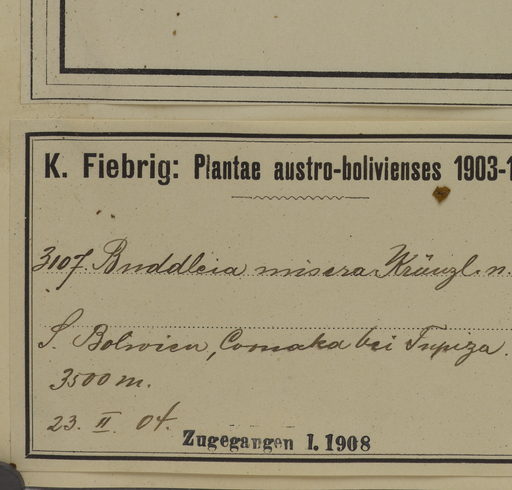 K. Fiebrig: Plantae austro-bolivienses 1903-1
3107. Buddleia misera Kränzl. n.
S. Bolivien, Comaka bei Tupiza.
3500 m.
23. II. 04.
Zugegangen I. 1908